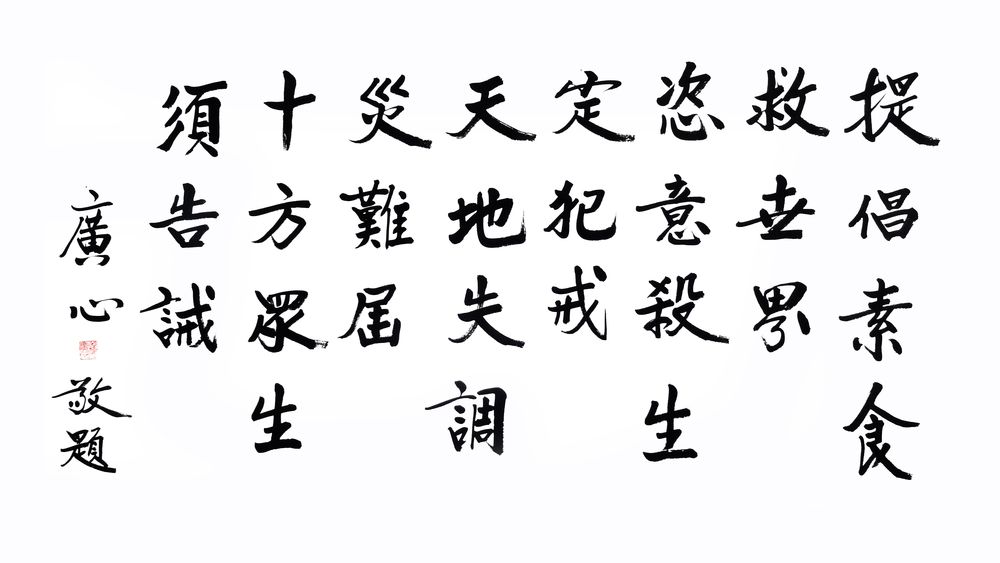 提倡素食
救世界
恣意殺生
定犯戒
天地失調
災難屆
十方眾生
須告誡
廣心
敬題